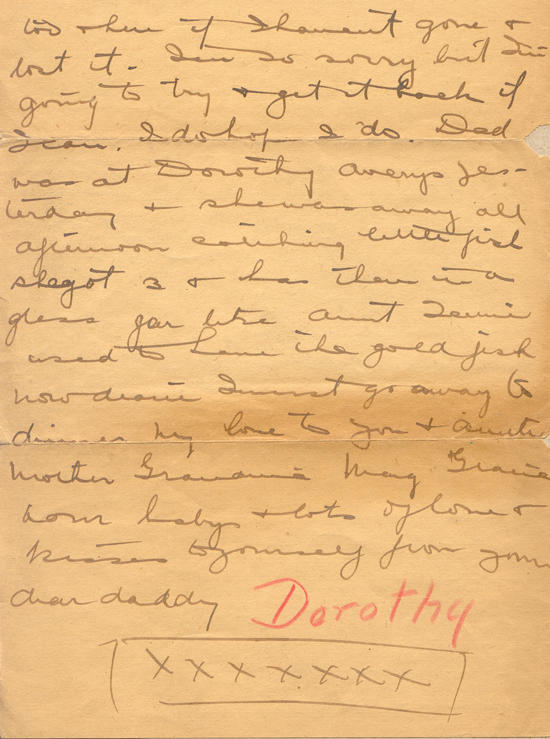 too & here if I havent gone &
lost it. I'm so sorry but I'm
going to try & get it back if
I can. I do hop I do. Dad
was at Dorothy averys yes-
terday & she was away all
afternoon catching little fish
she got 3 & has them in a
glass jar like aunt Jennie
used to have the gold fish
now dearie I must go away to
dinner my love to you & Auntie
mother Grandma May Gracie
baby & lots of love &
kisses to yourself from your
dear daddy Dorothy
XXXXXXX